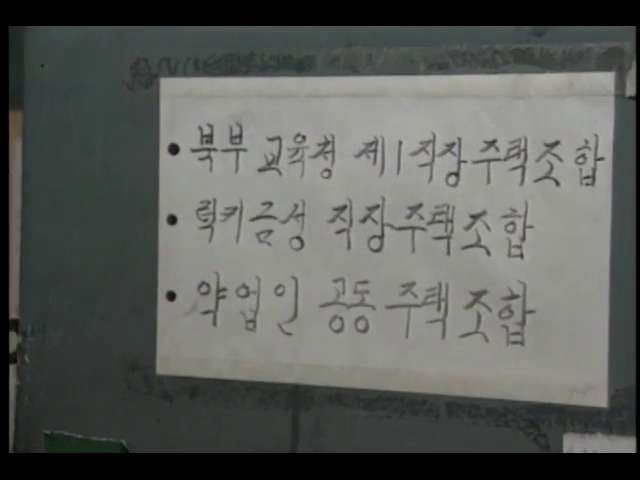 • 북부 교육청 제1직장주택조합
• 럭키금성 직장주택조합
• 약업인 공동주택조합